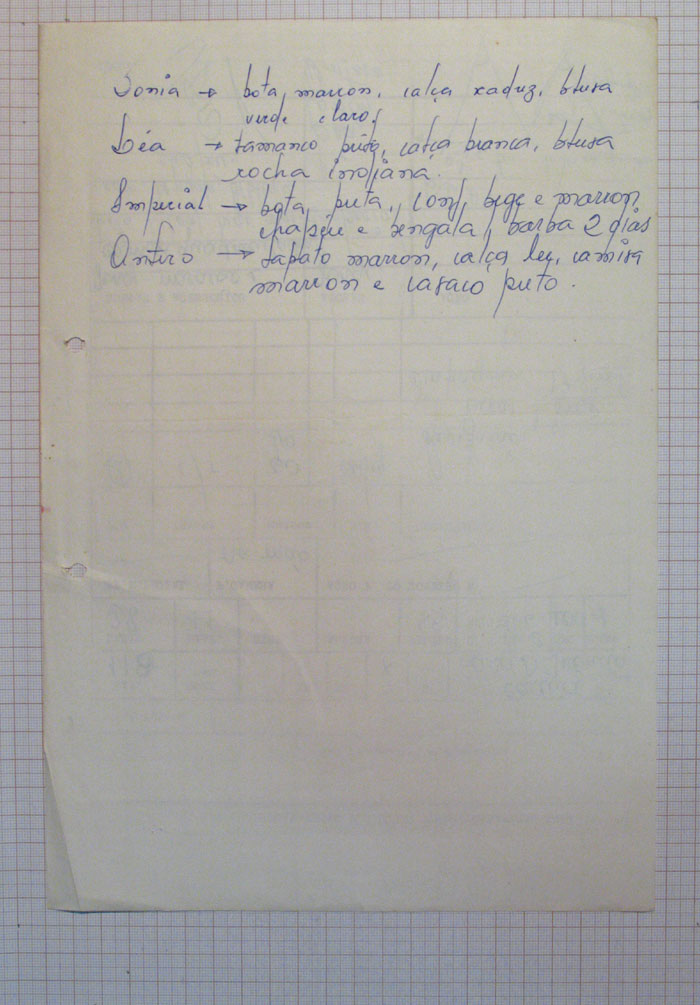 Sonia → bota marron, calça xadrez, blusa
verde claro.
Léa → tamanco preto, calça branca, blusa
rocha indiana.
Imperial → bota preta, conj. bege e marron,
chapéu e bengala, barba 2 dias
Antero → sapato marron, calça lee, camisa
marron e casaco preto.